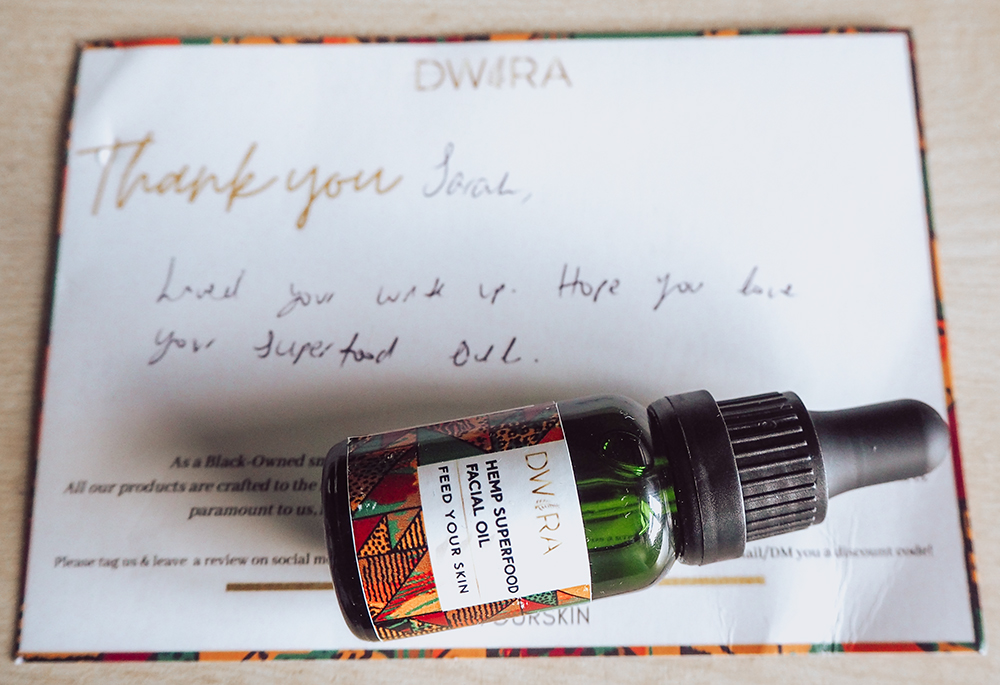 DWRA
Thank you Sarah,
Loved your write up. Hope you love
your Superfood Oil.
As a Black-Owned
All our products are crafted to the
paramount to us,
Please tag us & leave a review on social
you a discount code!
DWRA
HEMP SUPERFOOD
FACIAL OIL
FEED YOUR SKIN